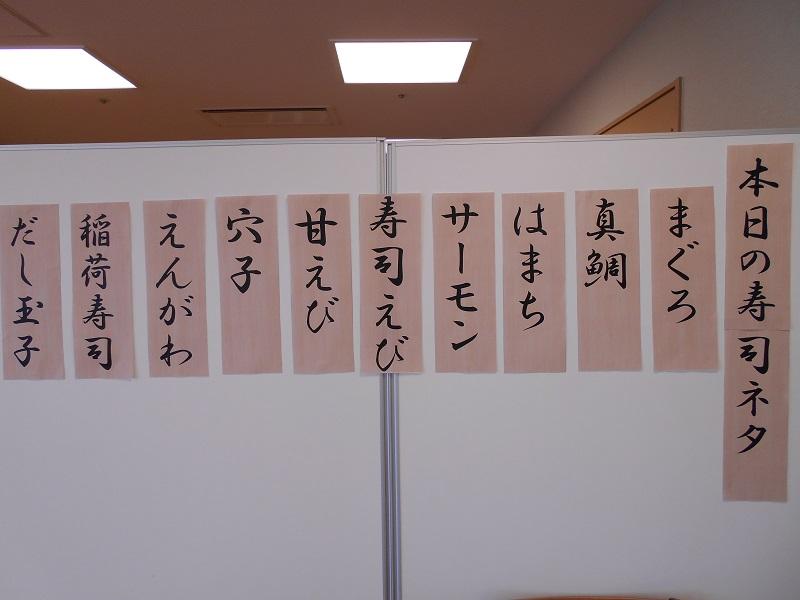 本日の寿司ネタ
まぐろ
真鯛
はまち
サーモン
寿司えび
甘えび
穴子
えんがわ
稲荷寿司
だし玉子